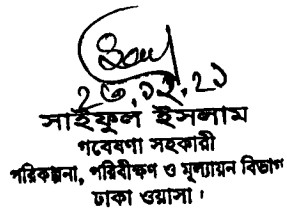 ২৩.০২.২১
সাইফুল ইসলাম
গবেষণা সহকারী
পরিকল্পনা, পরিবীক্ষণ ও মূল্যায়ন বিভাগ
ঢাকা ওয়াসা।